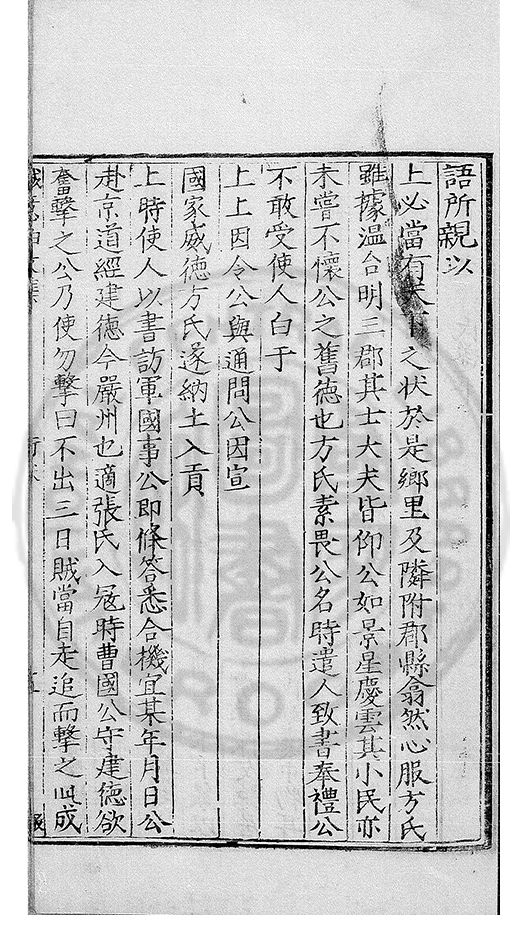 語所親以
上必當有天下之状於是鄉里及隣附郡縣翕然心服方氏
雖據温台明三郡其士大夫皆仰公如景星慶雲其小民亦
未嘗不懷公之舊德也方氏素畏公名時遣人致書奉禮公
不敢受使人白于
上上因令公與通問公因宣
國家威德方氏遂納土入貢
上時使人以書訪軍國事公即條答悉合機宜某年月日公
赴京道經建德今嚴州也適張氏入寇時曹國公守建德欲
奮擊之公乃使勿擊曰不出三日賊當自走追而擊之此成